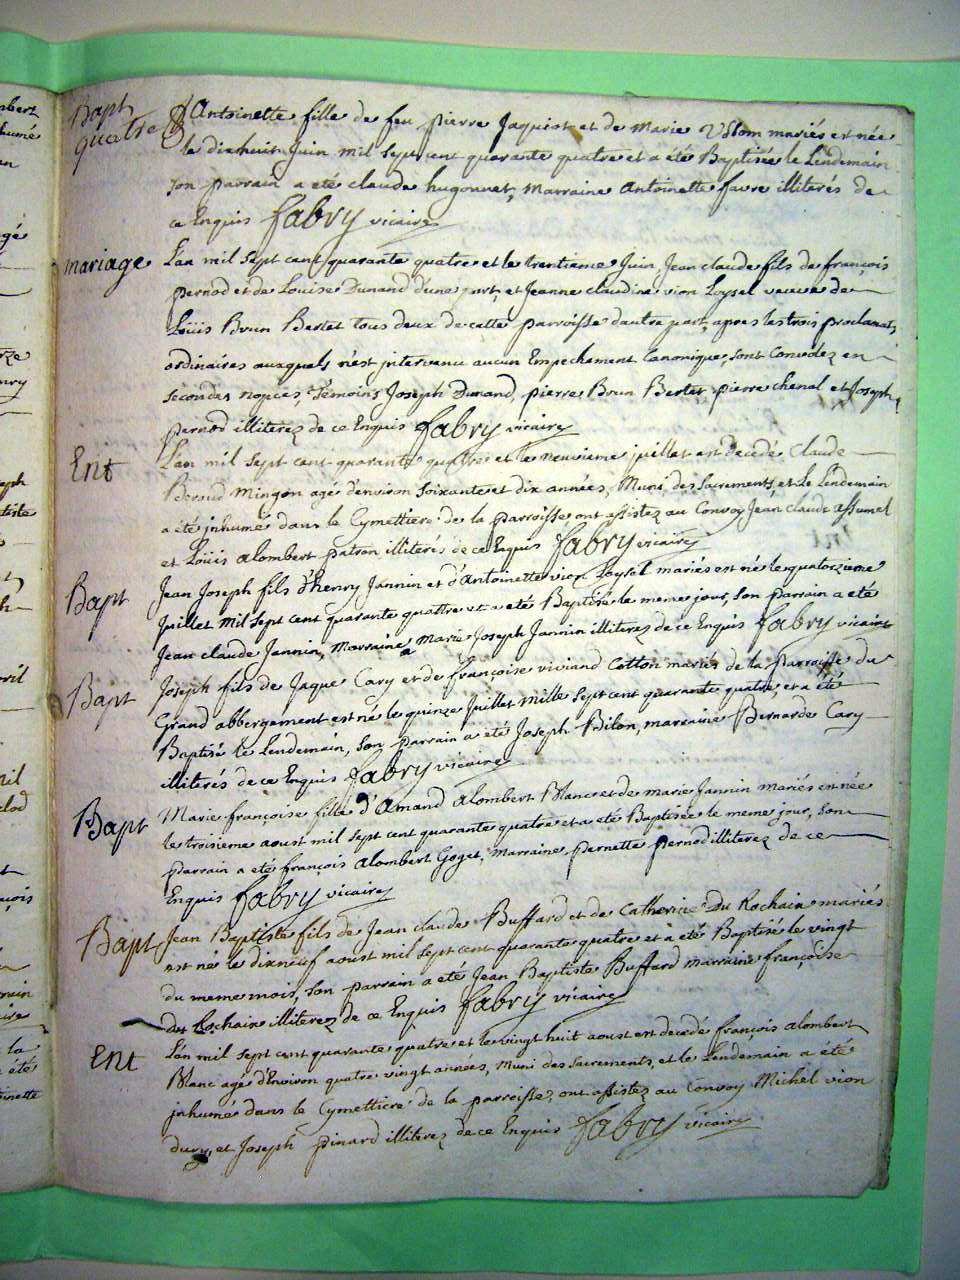 Bapt
quatre
Antoinette fille de feu pierre Jaquist et de Marie Vslom mariés est née
le dixhuit Juin mil sept cent quarante quatre et a été Baptisée le Lendemain
son parrain a été claude hugonnet, Marraine Antoinette favre illiterés de
ce Enquis fabry vicaire
mariage
L'an mil sept cent quarante quatre et le trentieme Juin, Jean claude fils de françois
pernod et de Louise Dunand d'une part, et Jeanne claudine vion Loysel veuve de
Loüis Brun Bertet tous deux de cette parroisse d'autre part, apres les trois proclamat,
ordinaires auxquels n'est intervenu aucun Empechement Canonique, sont Convolez en
secondes nopces, Témoins Joseph Dunand, pierre Brun Bertet pierre chenal et Joseph
pernod illiterez de ce Enquis fabry vicaire
Ent
L'an mil sept cent quarante quatre et le neuvieme juillet est decedé Claude
Beraud Mingon agé d'environ soixante et dix années, Muni des Sacrements et Le Lendemain
a été inhumé dans le Cymettiere de la parroisse, ont assistez au Convoy Jean claude assumel
et Loüis alombert patron illiterés de ce Enquis fabry vicaire
Bapt
Jean Joseph fils d'henry Jannin et d'Antoinette vion Loysel mariés est né le quatorzieme
Juillet mil sept cent quarante quattre et a eté Baptisé le meme jour, son parrain a été
Jean claude Jannin, Marraine a Marie Joseph Jannin illiterez de ce Enquis fabry vicaire
Bapt
Joseph fils de Jaque Cary et de françoise viviand Cotton mariés de la parroisse du
Grand abbergement est né le quinze Juillet mille sept cent quarante quatre et a été
Baptisé le Lendemain, son parrain a été Joseph Bilon, marraine Bernarde Cary
illiterés de ce Enquis fabry vicaire
Bapt
Marie françoise fille d'Amand alombert Blanc et de marie Jannin mariés est née
le troisieme aoust mil sept cent quarante quatre et a été Baptisée le meme jour, son
parrain a été françois alombert Goget, Marraine pernette pernod illiterez de ce
Enquis fabry vicaire
Bapt
Jean Baptiste fils de Jean claude Buffard et de Catherine Du Rochain mariés
est né le dixneuf aoust mil sept cent quarante quatre et a été Baptisé le vingt
du meme mois, son parrain a été Jean Baptiste Buffard marraine françoise
du Rochain illiterez de ce Enquis fabry vicaire
Ent
L'an mil sept cent quarante quatre et le vingt huit aoust est decedé françois alombert
Blanc agé d'Environ quatre vingt années, Muni des Sacrements, et le Lendemain a été
inhumé dans le Cymettiere de la parroisse, ont assistez au Convoy Michel vion
dury, et Joseph pinard illiterez de ce Enquis fabry vicaire